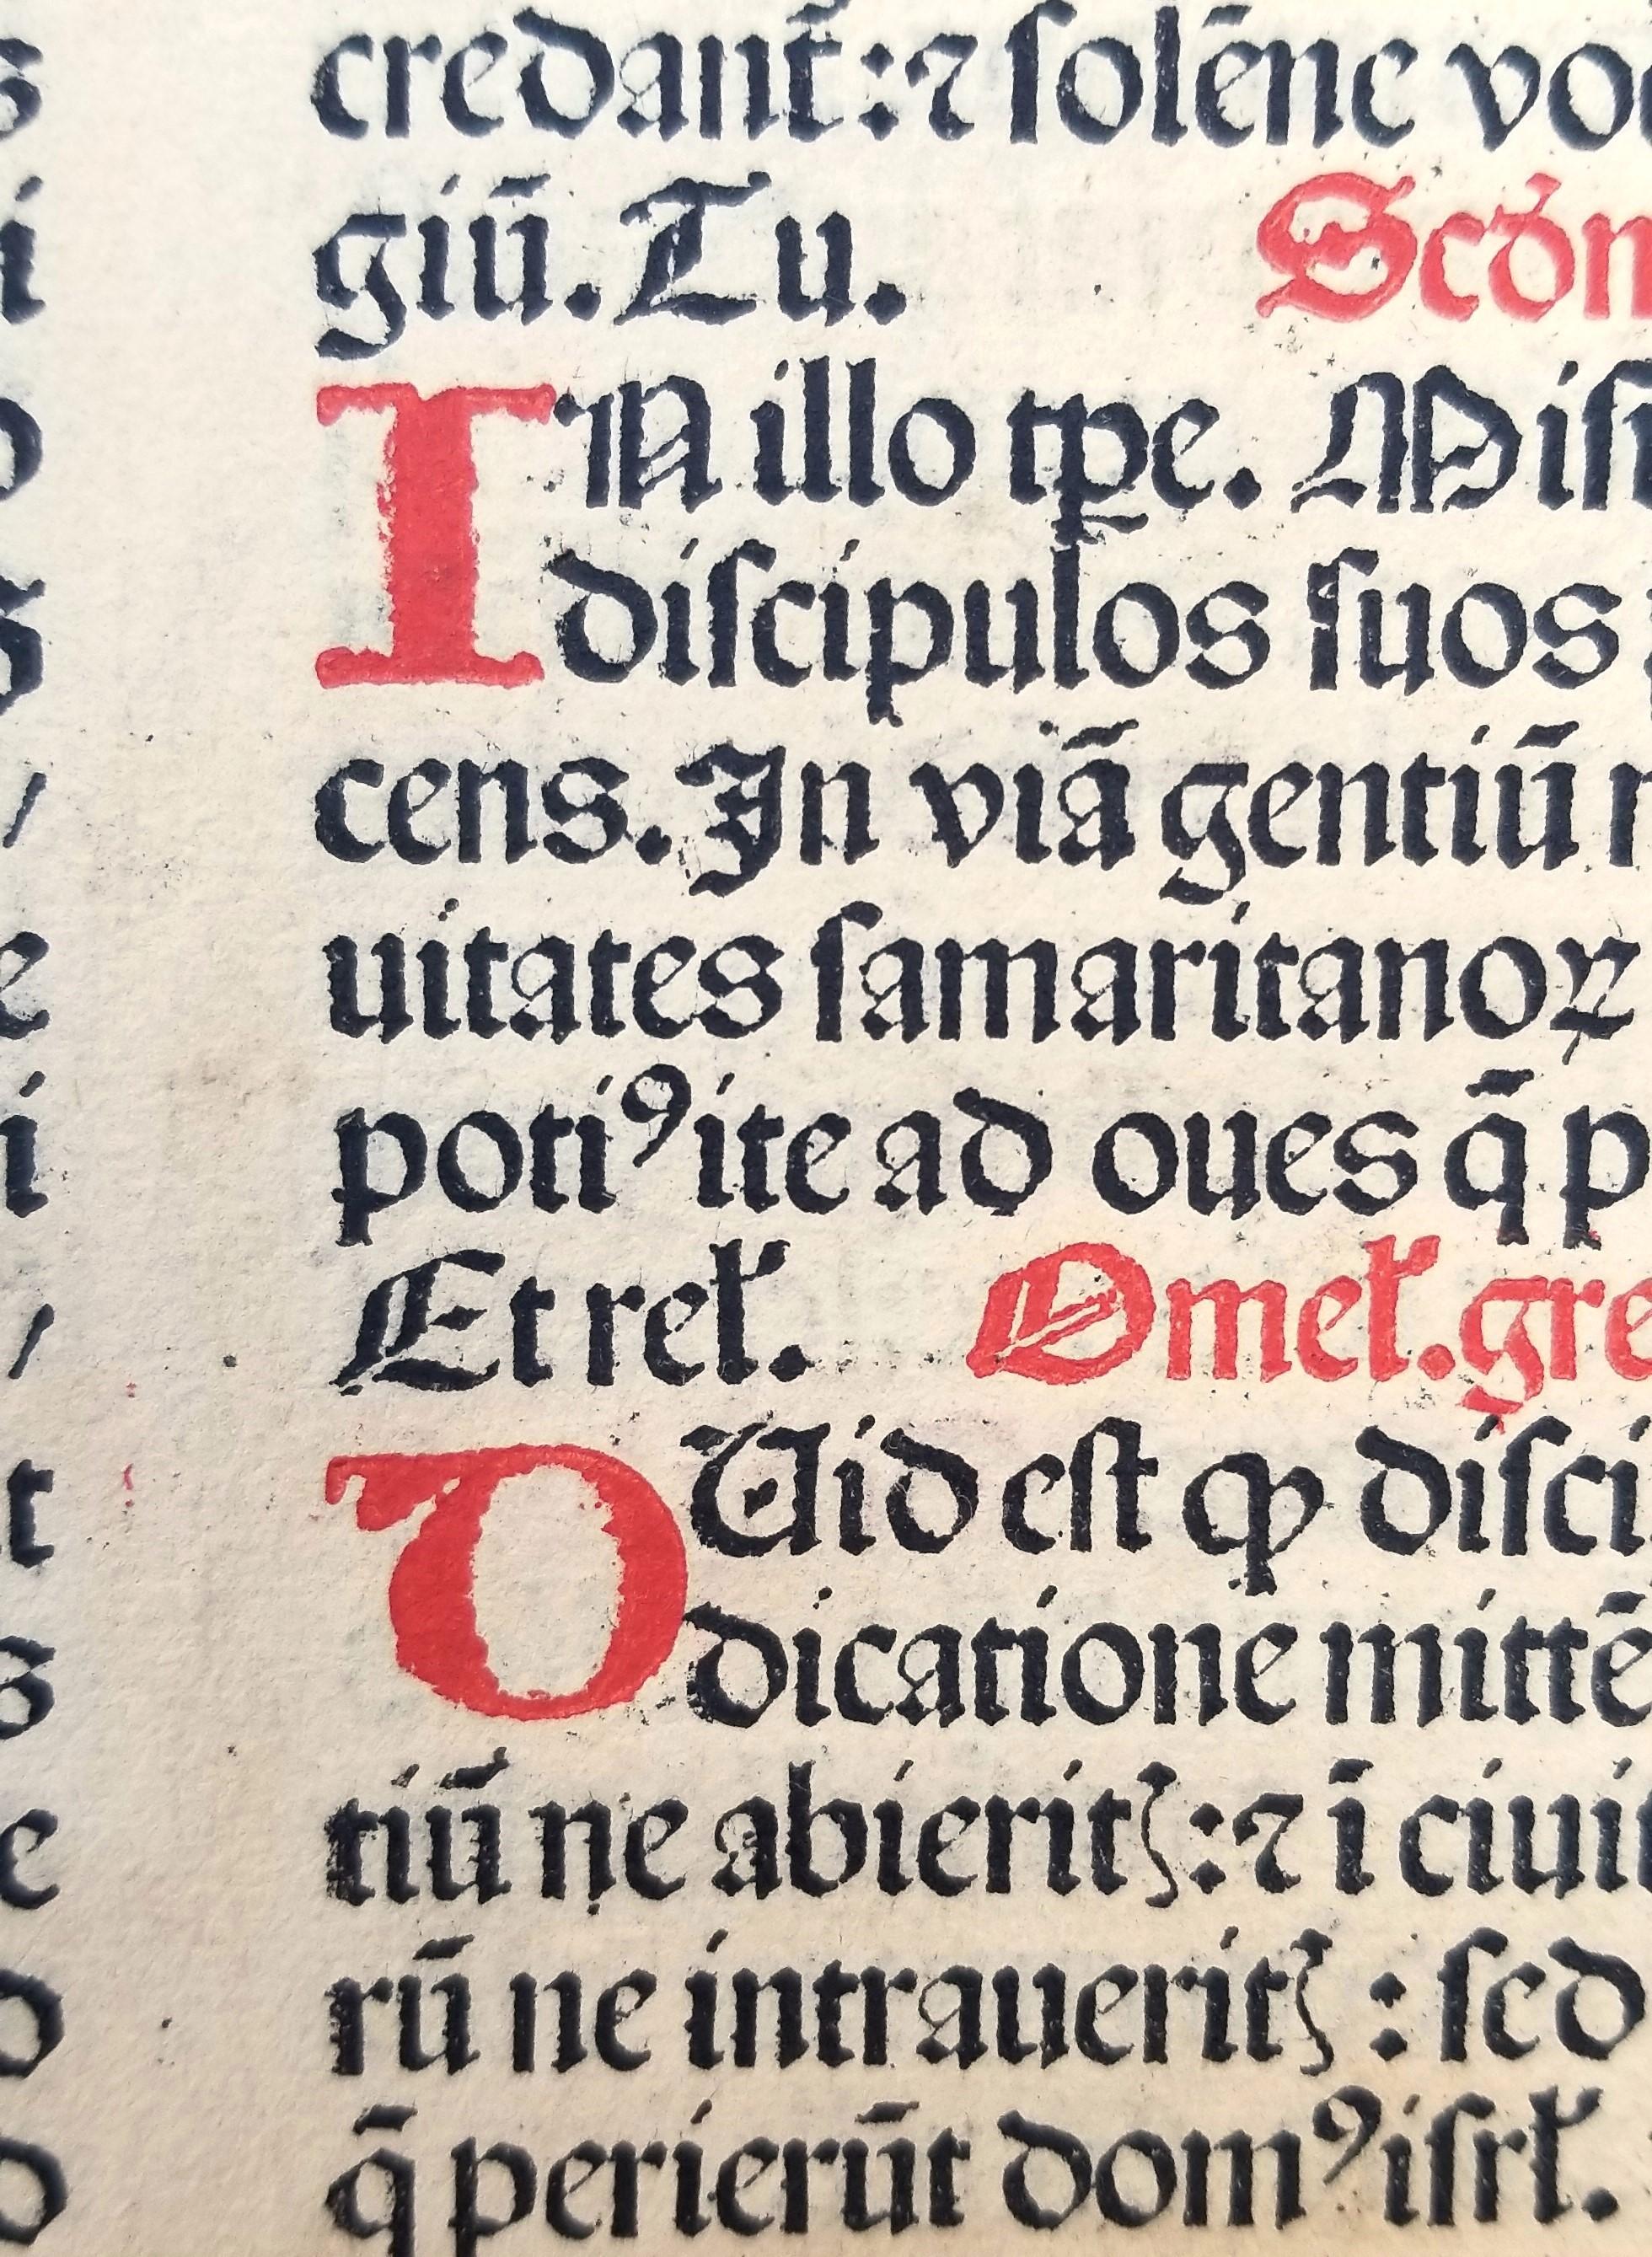 credant̃: ⁊ ſolēne vo
giū. Tu. Scd̃m
IN illo tp̄e. Miſi
diſcipulos ſuos
cens. In viā gentiū
uitates ſamaritanoꝝ
potiꝰ ite ad oues q̄ p
Et rel̃. Omel̃. gre
QUid eſt ꝙ diſci
dicatione mittē
tiū ne abieritꝭ: ⁊ ī ciui
rū ne intraueritꝭ: ſed
q̄ perierūt domꝰ iſrl̃.